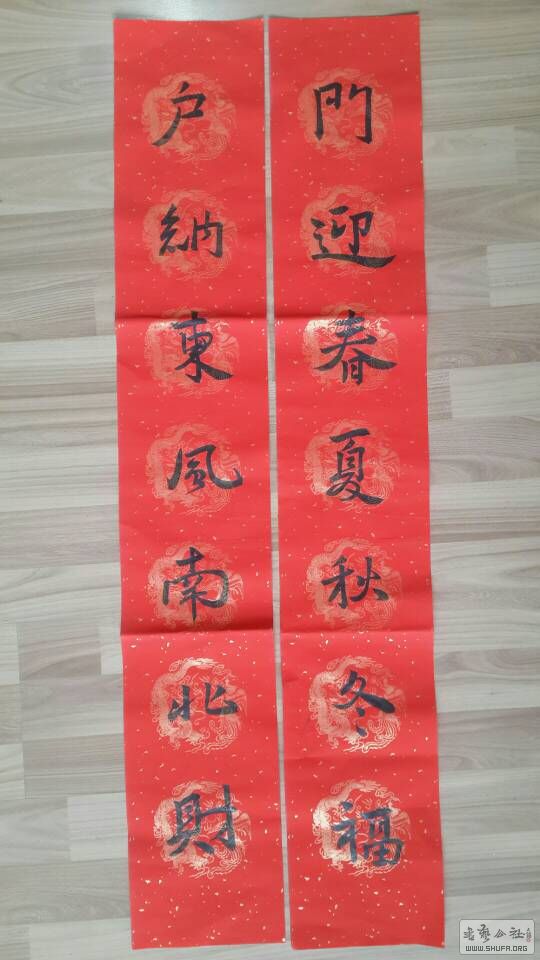 門迎春夏秋冬福
户納東風南北財
WWW.SHUFA.ORG